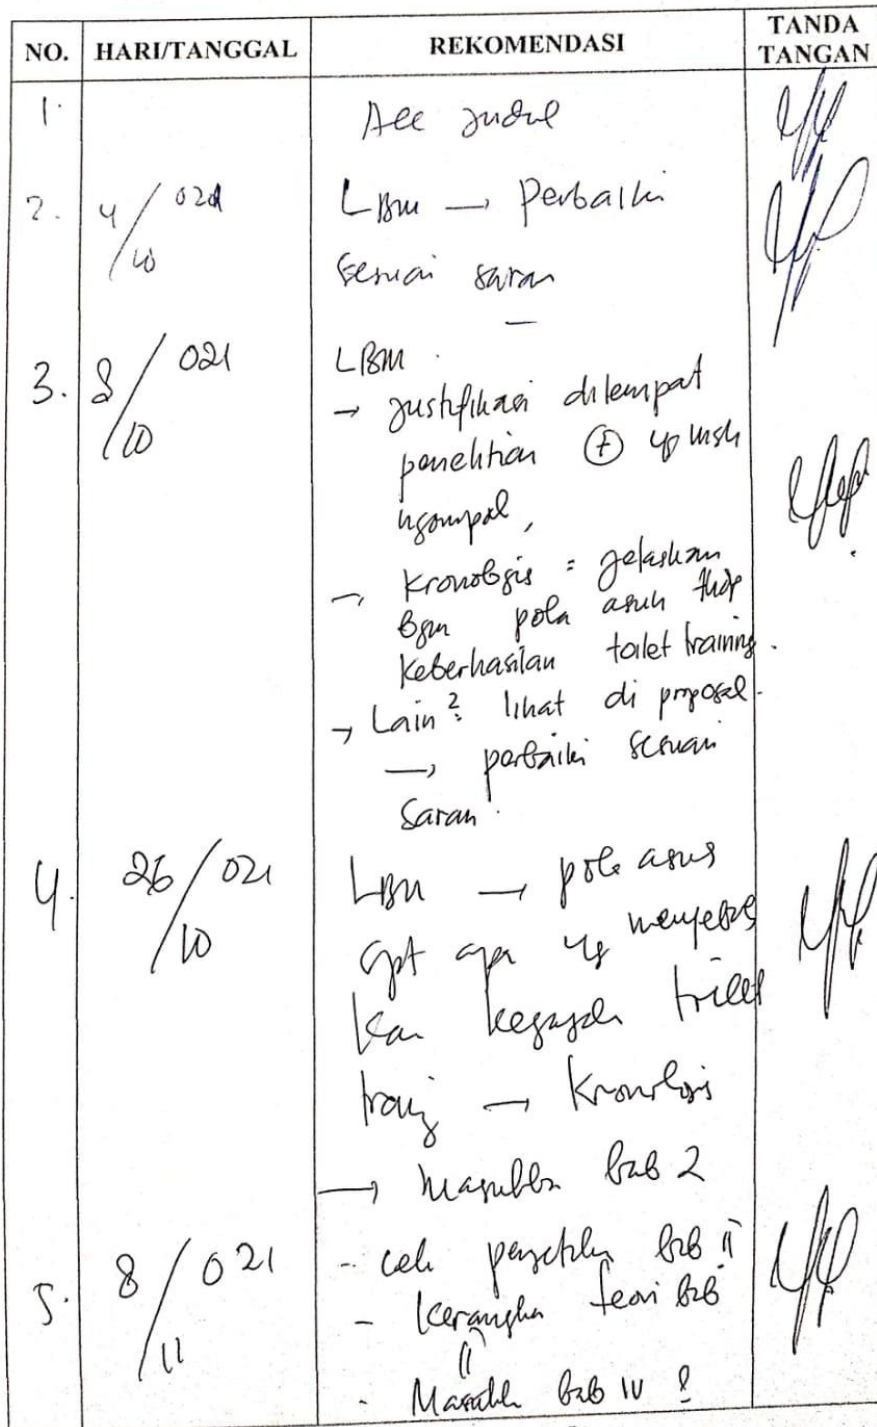 NO. HARI/TANGGAL REKOMENDASI TANDA TANGAN
1. Acc judul
2. 4/10 021 LBM → Perbaiki
sesuai saran
3. 8/10 021 LBM.
→ Justifikasi ditempat
penelitian + yg msh
ngompol,
→ Kronologis = jelaskan
bgm pola asuh thdp
keberhasilan toilet training.
→ Lain²: lihat di proposal.
→ perbaiki sesuai
saran.
4. 26/10 021 LBM → pola asuh
spt apa yg menyebab
kan kegagalan toilet
traing → Kronologis
→ Masukkan bab 2
5. 8/11 021 - cek pengetikan bab II
- Kerangka teori bab
II
- Masukk bab IV ?